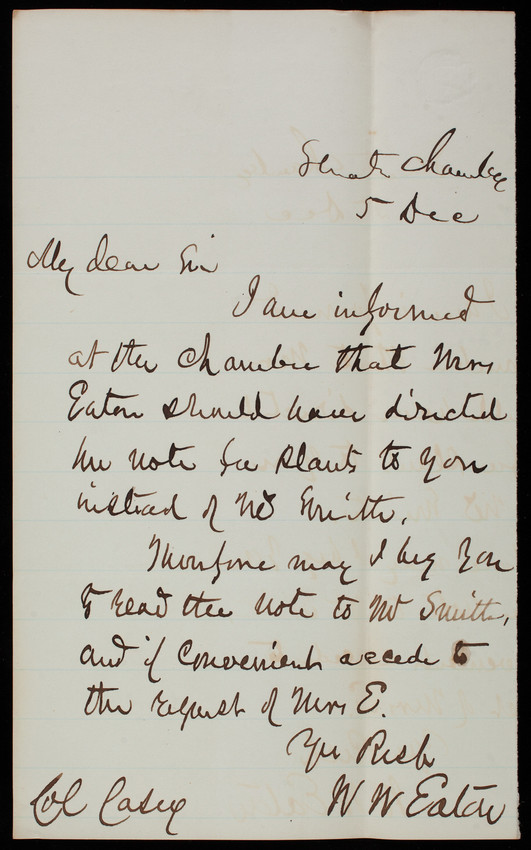 Senate Chamber
5 Dec
My dear Sir
I am informed
at the Chamber that Mrs
Eaton should have directed
her note for plants to you
instead of Mr Smith.
Therefore may I beg you
to read the note to Mr Smith,
and if convenient accede to
the request of Mrs E.
Yrs Resp
W W Eaton
Col Casey